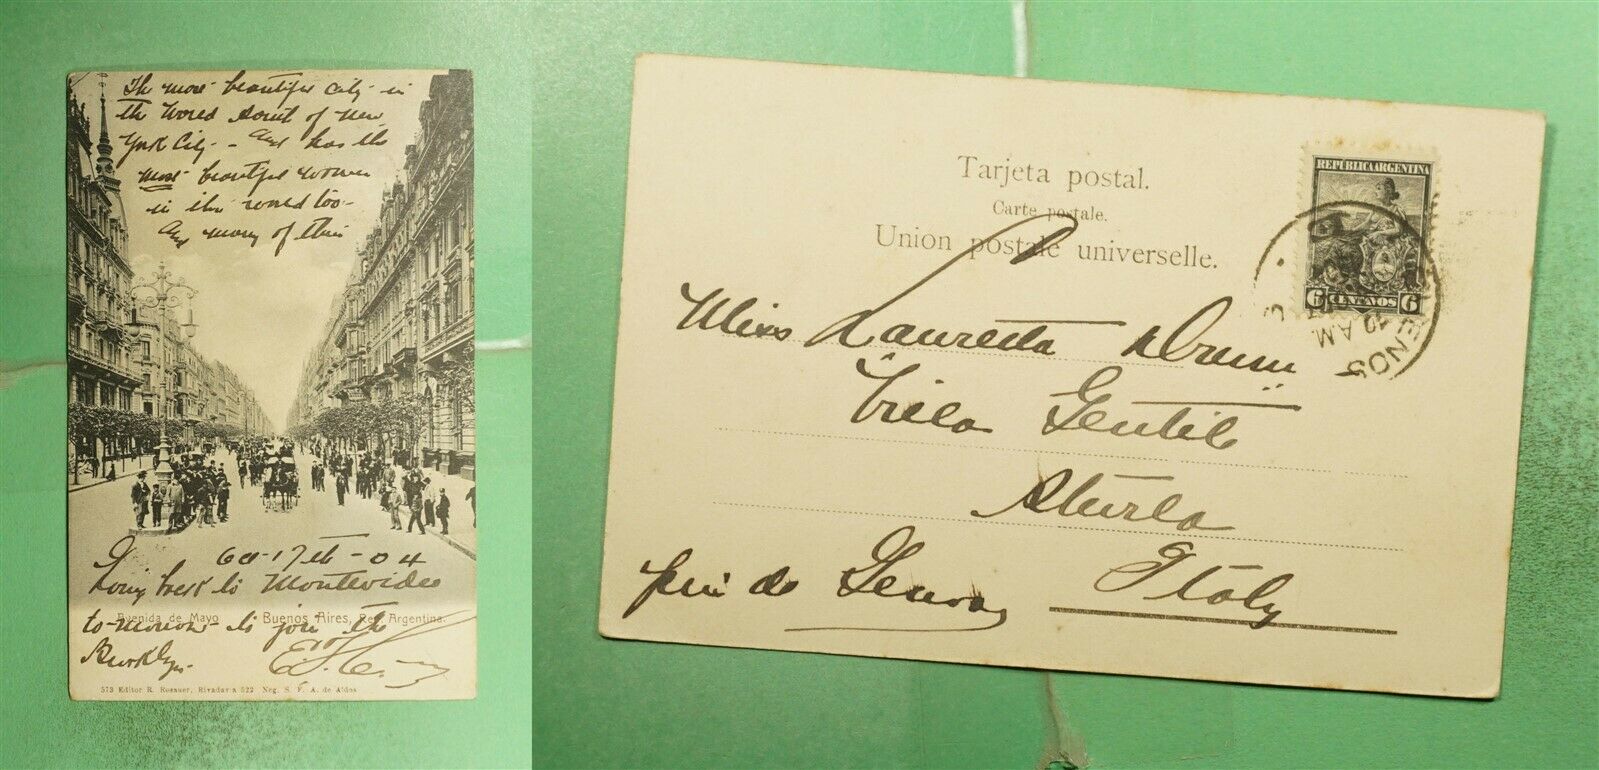 The most beautiful city in
the world south of New
York City - and has the
most beautiful women
in the world too -
and many of them
17th - 04
Going back to Montevideo
Avenida de Mayo - Buenos Aires, Rep. Argentina.
to-morrow to join the
Brooklyn.
573 Editor R. Rosauer, Rivadavia 522 Neg. S. F. A. de Afdos
Tarjeta postal.
Carte postale.
Union postale universelle.
REPUBLICA ARGENTINA
6 CENTAVOS 6
10 AM
BUENOS
Miss Lauretta
Villa Gentile
Sturla
Genova
Italy